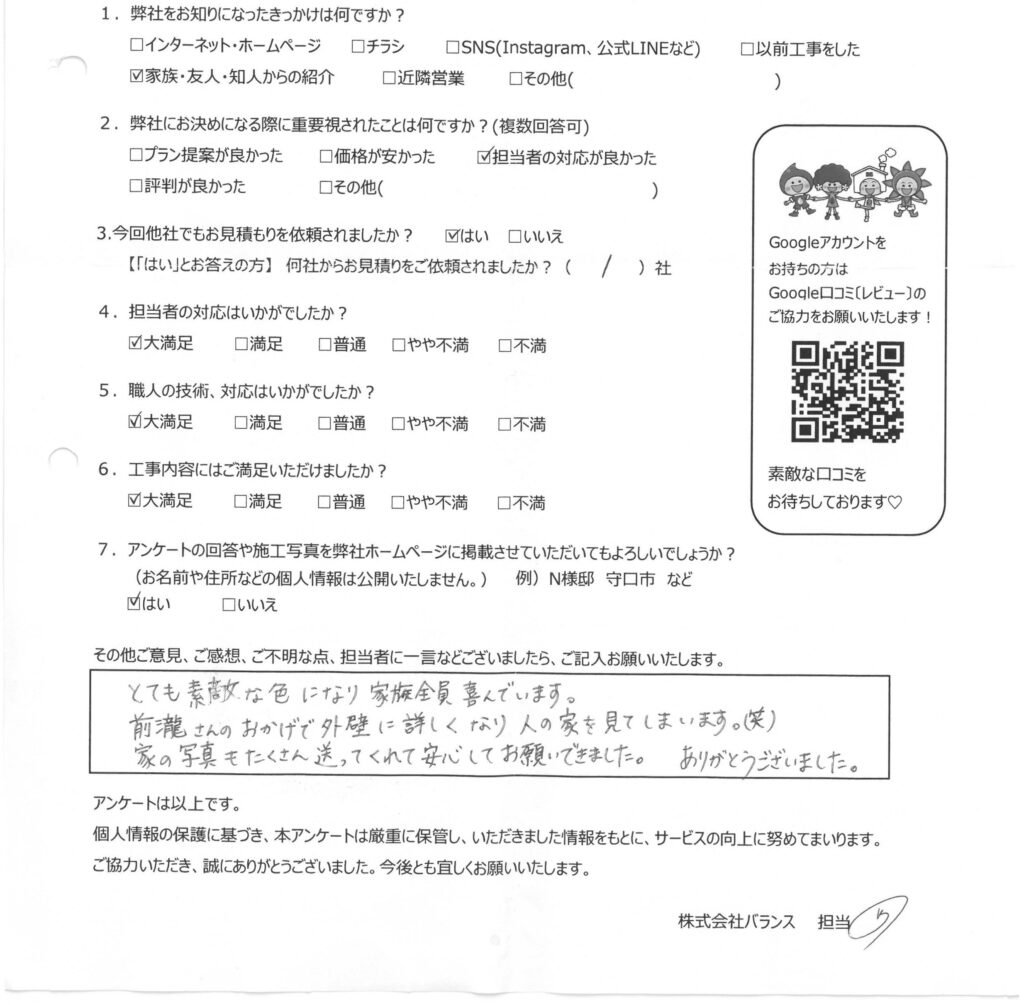 1．弊社をお知りになったきっかけは何ですか？
□インターネット・ホームページ　□チラシ　□SNS(Instagram、公式LINEなど)　□以前工事をした
☑家族・友人・知人からの紹介　□近隣営業　□その他(　)
2．弊社にお決めになる際に重要視されたことは何ですか？(複数回答可)
□プラン提案が良かった　□価格が安かった　☑担当者の対応が良かった
□評判が良かった　□その他(　)
3.今回他社でもお見積もりを依頼されましたか？　☑はい　□いいえ
【「はい」とお答えの方】　何社からお見積りをご依頼されましたか？（　/　）社
4．担当者の対応はいかがでしたか？
☑大満足　□満足　□普通　□やや不満　□不満
5．職人の技術、対応はいかがでしたか？
☑大満足　□満足　□普通　□やや不満　□不満
6．工事内容にはご満足いただけましたか？
☑大満足　□満足　□普通　□やや不満　□不満
7．アンケートの回答や施工写真を弊社ホームページに掲載させていただいてもよろしいでしょうか？
（お名前や住所などの個人情報は公開いたしません。）　例）N様邸　守口市　など
☑はい　□いいえ
Googleアカウントを
お持ちの方は
Google口コミ〔レビュー〕の
ご協力をお願いいたします！
素敵な口コミを
お待ちしております♡
その他ご意見、ご感想、ご不明な点、担当者に一言などございましたら、ご記入お願いいたします。
とても素敵な色になり家族全員喜んでいます。
前瀧さんのおかげで外壁に詳しくなり人の家を見てしまいます。(笑)
家の写真もたくさん送ってくれて安心してお願いできました。　ありがとうございました。
アンケートは以上です。
個人情報の保護に基づき、本アンケートは厳重に保管し、いただきました情報をもとに、サービスの向上に努めてまいります。
ご協力いただき、誠にありがとうございました。今後とも宜しくお願いいたします。
株式会社バランス　担当